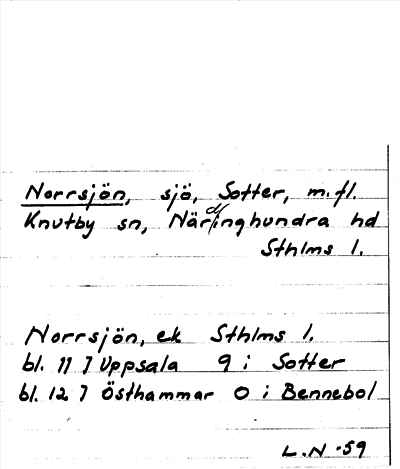 Norrsjön, sjö, Sotter, m.fl.
Knutby sn, Närdinghundra hd
Sthlms l.
Norrsjön, ek Sthlms l.
bl. 11 J Uppsala 9 i Sotter
bl. 12 J Östhammar 0 i Bennebol
L.N -59